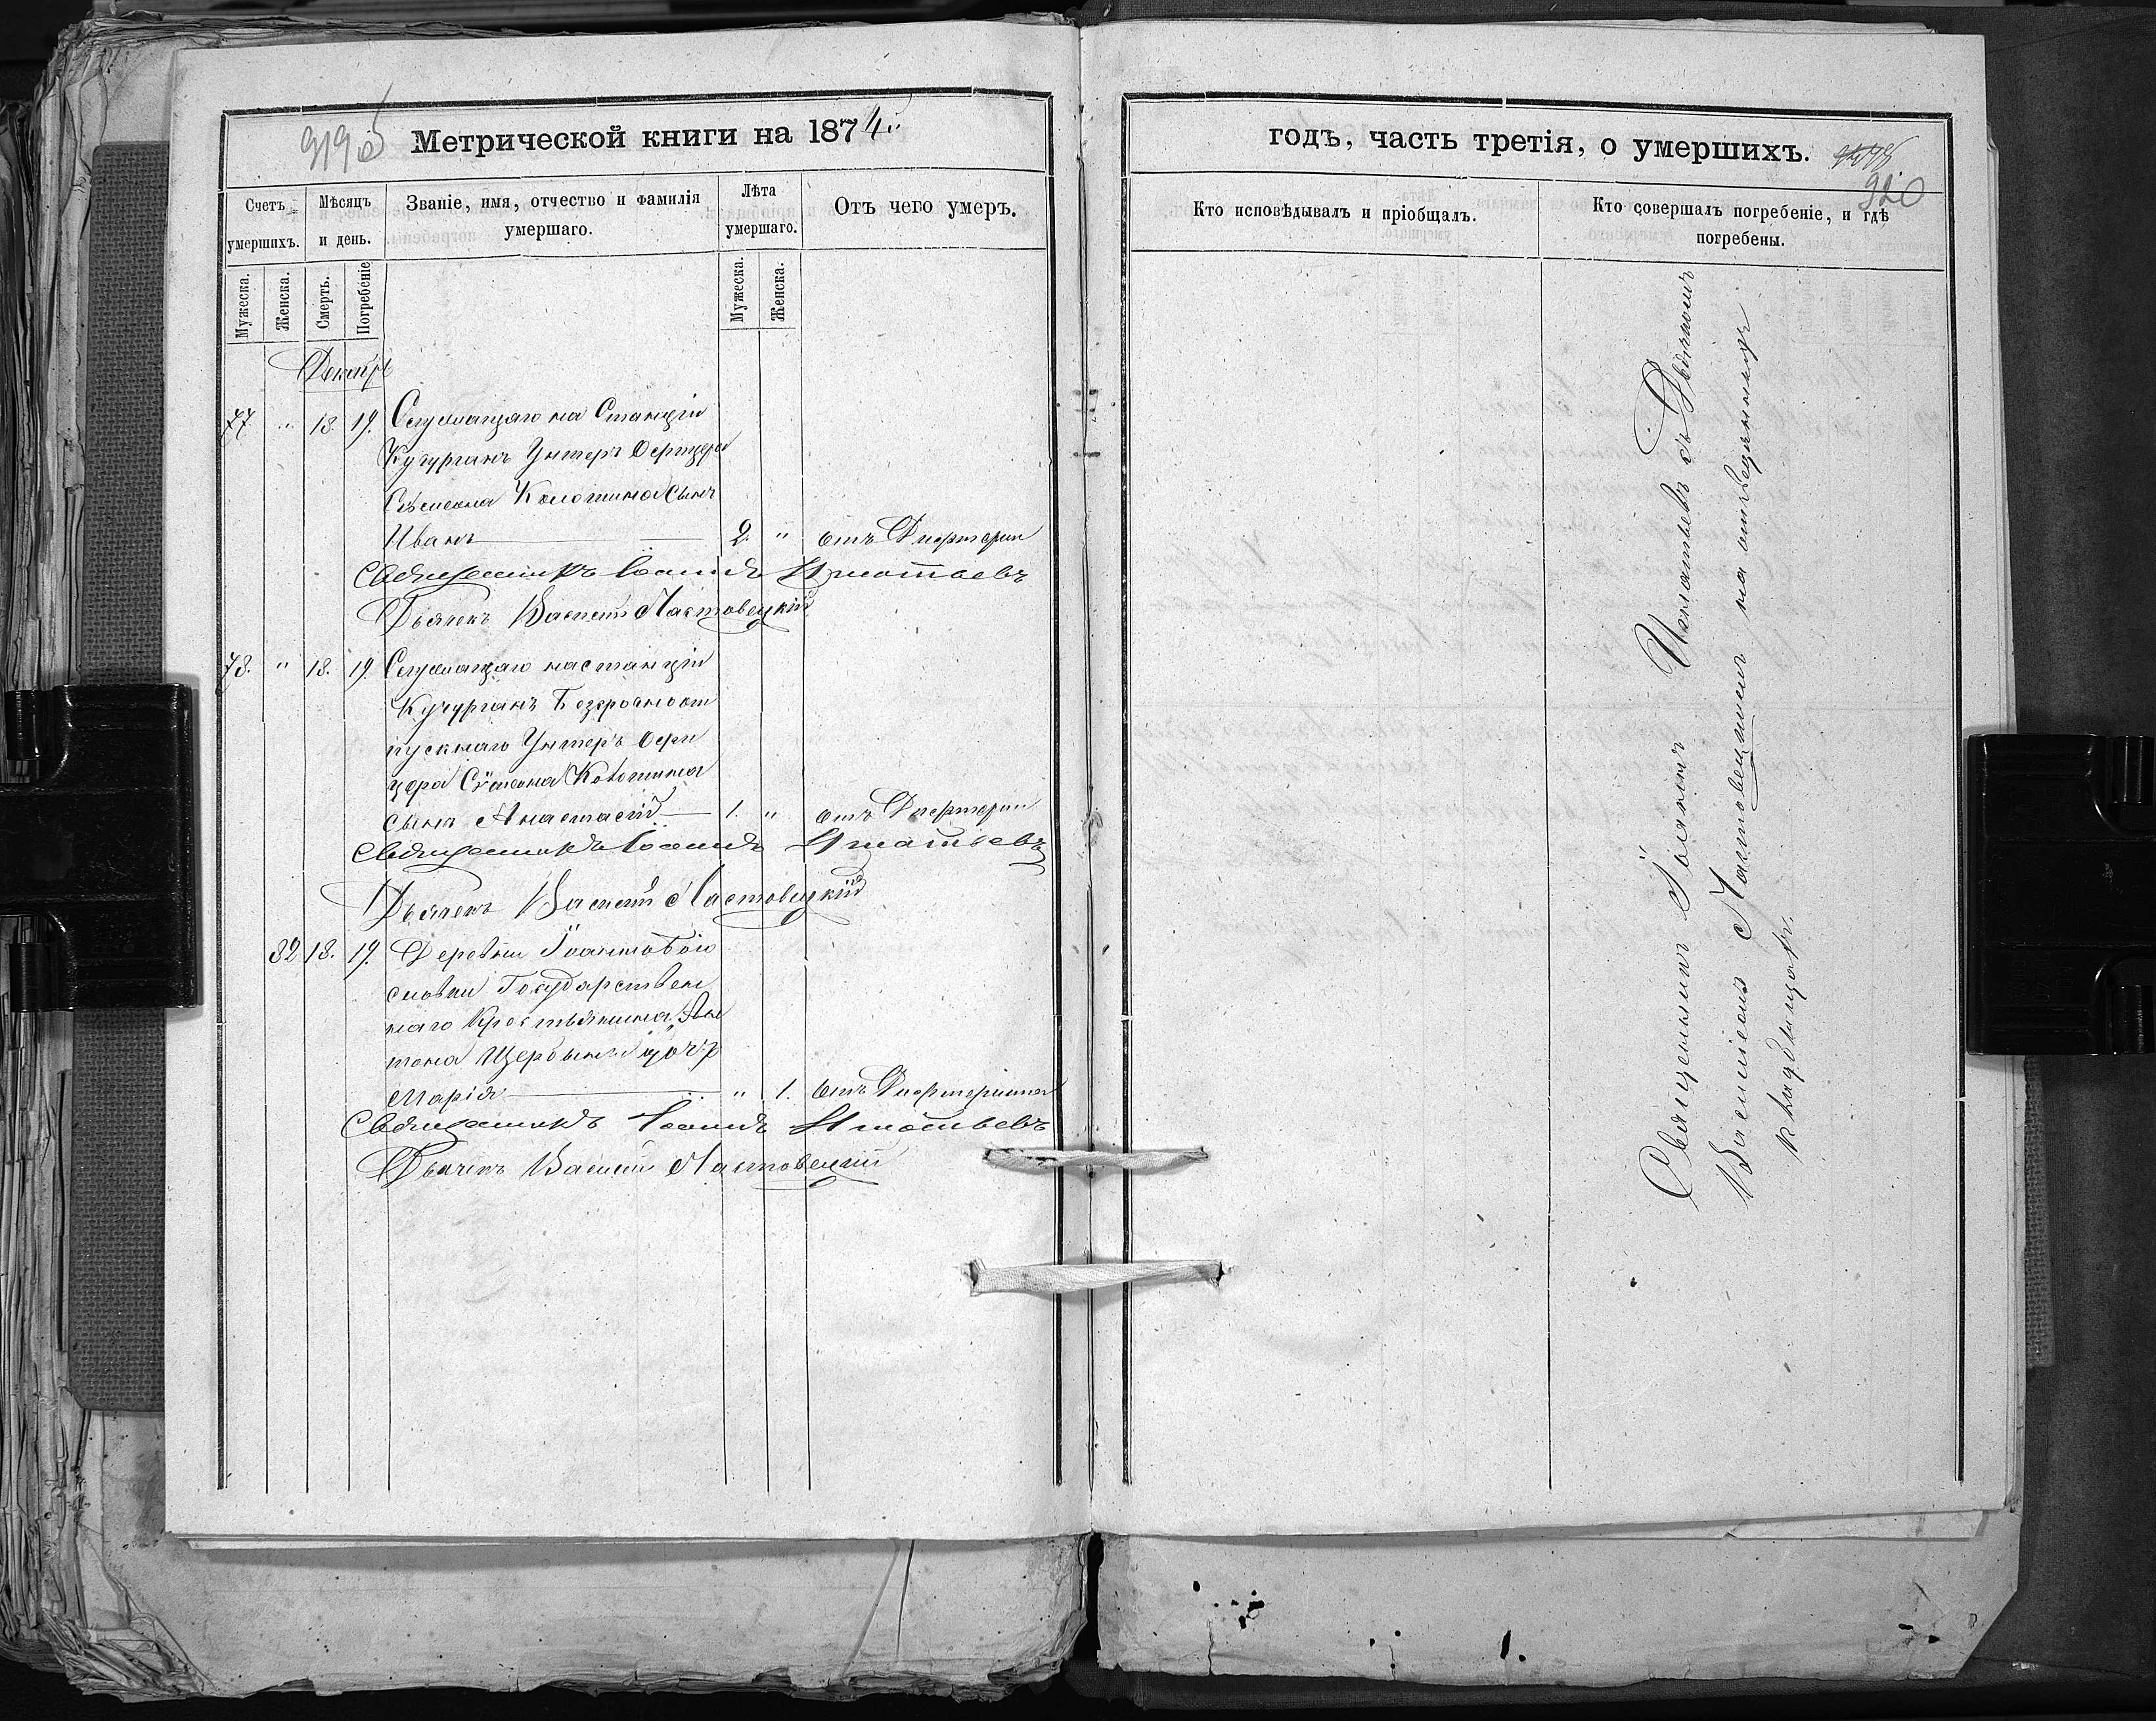 919
Метрической книги на 1874
Счетъ умершихъ.
Мѣсяцъ и день.
Званіе, имя, отчество и фамилія умершаго.
Лѣта умершаго.
Отъ чего умеръ.
Мужеска.
Женска.
Смерть.
Погребеніе
Мужеска.
Женска.
Декабрь
77 " 18. 19. Служащаго на Станціи
Кучурганъ Унтеръ Офицера
Сѵмеона Колотина сынъ
Иванъ 2. " отъ Дифтерии
Священникъ Іоаннъ Игнатьевъ
Дьячекъ Василій Ластовецкій
78. " 18. 19. Служащаго на станціи
Кучурганъ Безсрочноот
пускнаго Унтеръ Офи
цера Сѵмеона Колотина
сынъ Анастасій 1. " отъ Дифтерии
Священникъ Іоаннъ Игнатьевъ
Дьячекъ Василій Ластовецкій
32 18. 19. Деревни
Государствен
наго Крестьянина Ан
тона Щербины дочь
Марія " 1. отъ
Священникъ Іоаннъ Игнатьевъ
Дьячекъ Василій Ластовецкій
годъ, часть третія, о умершихъ.
920
Кто исповѣдывалъ и пріобщалъ.
Кто совершалъ погребеніе, и гдѣ погребены.
Священникъ Іоаннъ Игнатьевъ съ Дьячкомъ
Василіемъ Ластовецкимъ на отведенномъ
кладбищѣ.